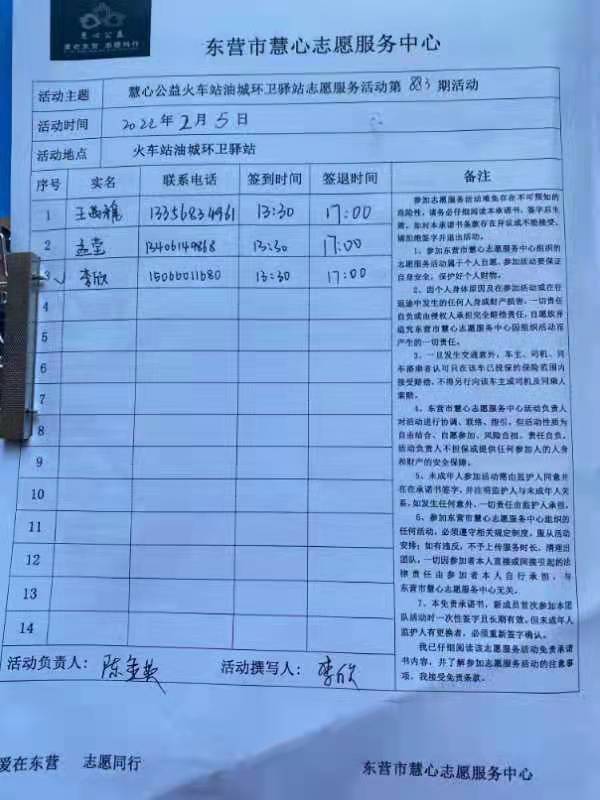 慧心公益
爱心东营 志愿同行
东营市慧心志愿服务中心
活动主题 慧心公益火车站油城环卫驿站志愿服务活动第 883 期活动
活动时间 2022年2月5日
活动地点 火车站油城环卫驿站
序号 实名 联系电话 签到时间 签退时间 备注
1 13356834961 13:30 17:00
2 孟莹 13406149868 13:30 17:00
3 李欣 15066011680 13:30 17:00
4
5
6
7
8
9
10
11
12
13
14
参加志愿服务活动难免存在不可预知的
危险性，请务必仔细阅读本承诺书，签字后生
效。如对本承诺书条款存在异议或不能接受，
请拒绝签字并退出活动。
1、参加东营市慧心志愿服务中心组织的
志愿服务活动属于个人自愿。参加活动要保证
自身安全，保护好个人财物。
2、因个人身体原因及在参加活动或在往
返途中发生的任何人身或财产损害，一切责任
自负或由侵权人承担完全赔偿责任，自愿放弃
追究东营市慧心志愿服务中心因组织活动而
产生的一切责任。
3、一旦发生交通意外，车主、司机、同车
搭乘者认可只在该车已投保的保险范围内
接受赔偿，不得另行向该车主或司机及同乘人
索赔。
4、东营市慧心志愿服务中心活动负责人
对活动进行协调、联络、指引，但活动性质为
自由结合、自愿参加、风险自担、责任自负。
活动负责人不担保或提供任何参加人的人身
和财产的安全保障。
5、未成年人参加活动需由监护人同意并
在在承诺书签字，并注明监护人与未成年人关
系，如发生任何意外，一切责任由监护人承担。
6、参加东营市慧心志愿服务中心组织的
任何活动，必须遵守相关规定制度，服从活动
安排；如有违反，不予上传服务时长，清退出
团队，一切因参加者本人直接或间接引起的法
律责任由参加者本人自行承担，与
东营市慧心志愿服务中心无关。
7、本免责承诺书，新成员首次参加本团
队活动时一次性签字且长期有效。但未成年人
监护人有更换者，必须重新签字确认。
我已仔细阅读该志愿服务活动免责承诺
书内容，并了解参加志愿服务活动的注意事
项，我接受免责条款。
活动负责人： 陈金英 活动撰写人： 李欣
爱在东营 志愿同行 东营市慧心志愿服务中心